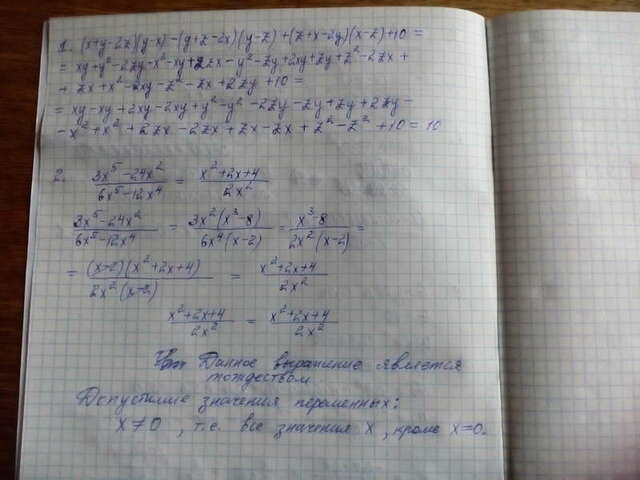 1. (x+y-2z)(y-x)-(y+z-2x)(y-z)+(z+x-2y)(x-z)+10 =
= xy+y²-2zy-x²-xy+2zx-y²-zy+2xy+zy+z²-2zx+
+ zx+x²-2xy-z²-zx+2zy+10 =
= xy-xy+2xy-2xy+y²-y²-2zy-zy+zy+2zy-
-x²+x²+2zx-2zx+zx-zx+z²-z²+10 = 10
2. (3x⁵-24x²)/(6x⁵-12x⁴) = (x²+2x+4)/(2x²)
(3x⁵-24x²)/(6x⁵-12x⁴) = (3x²(x³-8))/(6x⁴(x-2)) = (x³-8)/(2x²(x-2)) =
= ((x-2)(x²+2x+4))/(2x²(x-2)) = (x²+2x+4)/(2x²)
(x²+2x+4)/(2x²) = (x²+2x+4)/(2x²)
Данное выражение является
тождеством.
Допустимые значения переменных:
x≠0, т.е. все значения x, кроме x=0.